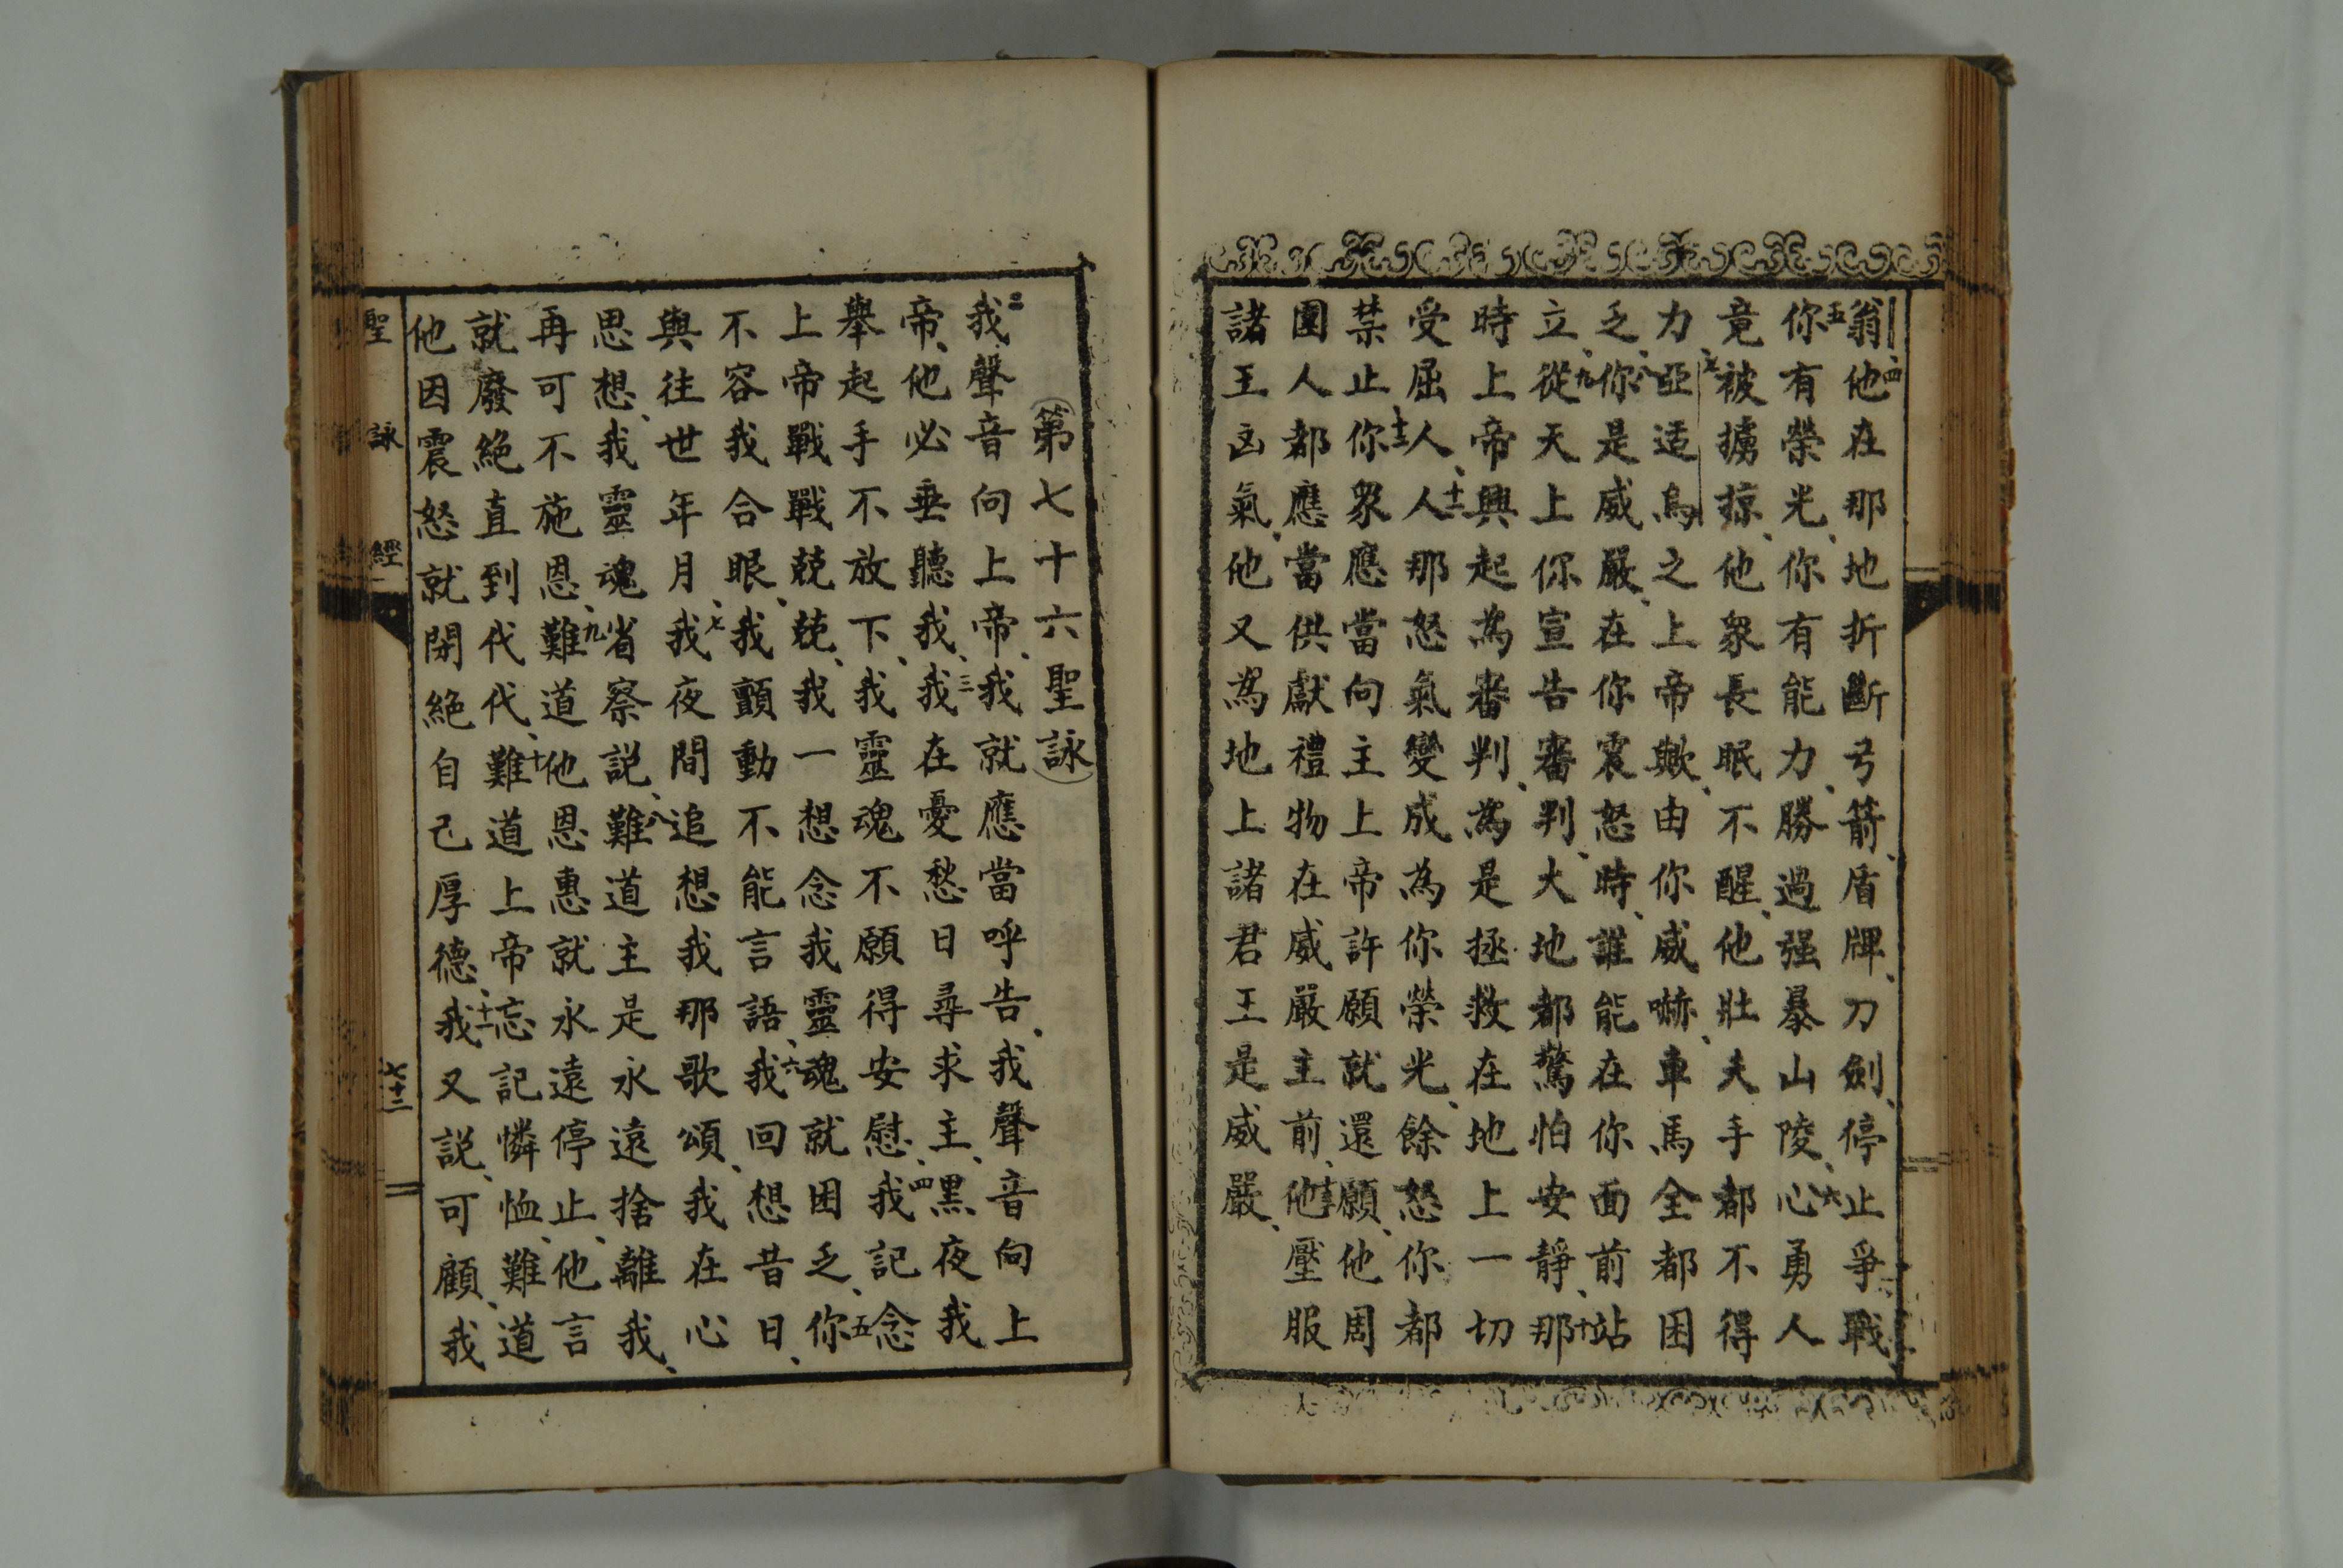 翁、四他在那地折斷弓箭、盾牌、刀劍、停止爭戰、
五你有榮光、你有能力、勝過强暴山陵、六心勇人
竟被擄掠、他衆長眠不醒、他壯夫手都不得
力、七亞适烏之上帝歟、由你威嚇、車馬全都困
乏、八你是威嚴、在你震怒時、誰能在你面前站
立、九從天上你宣告審判、大地都驚怕安靜、十那
時上帝興起為審判、為是拯救在地上一切
受屈人、十一人那怒氣變成為你榮光、餘怒你都
禁止、十二你衆應當向主上帝許願就還願、他周
圍人都應當供獻禮物在威嚴主前、十三他壓服
諸王凶氣、他又為地上諸君王是威嚴、
第七十六聖詠
二我聲音向上帝、我就應當呼告、我聲音向上
帝、他必垂聽我、三我在憂愁日尋求主、黑夜我
舉起手不放下、我靈魂不願得安慰、四我記念
上帝戰戰兢兢、我一想念我靈魂就困乏、五你
不容我合眼、我顫動不能言語、六我回想昔日、
與往世年月、七我夜間追想我那歌頌、我在心
思想、我靈魂省察説、八難道主是永遠捨離我、
再可不施恩、九難道他恩惠就永遠停止、他言
就廢絶直到代代、十難道上帝忘記憐恤、難道
他因震怒就閉絶自己厚德、十一我又説、可顧、我
聖詠經
七十三